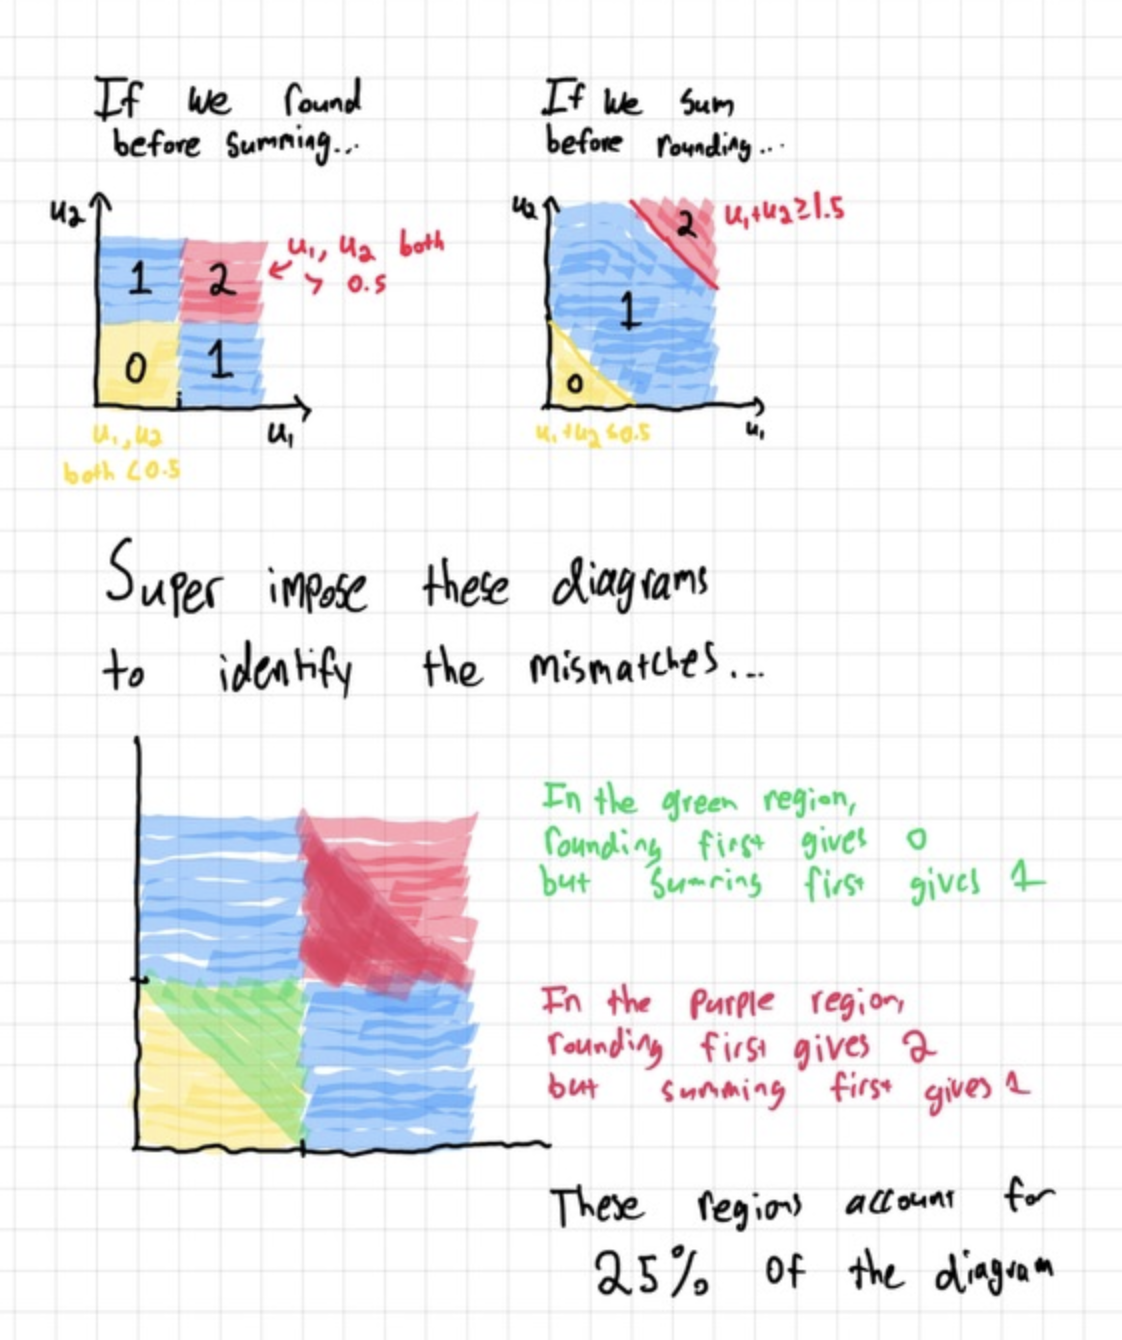 If we round
before summing...
u2
1
2
u1, u2 both
> 0.5
0
1
u1
u1, u2
both < 0.5
If we sum
before rounding...
u2
2
u1+u2 ≥ 1.5
1
0
u1+u2 ≤ 0.5
u1
Super impose these diagrams
to identify the mismatches...
In the green region,
rounding first gives 0
but summing first gives 1
In the purple region,
rounding first gives 2
but summing first gives 1
These regions account for
25% of the diagram